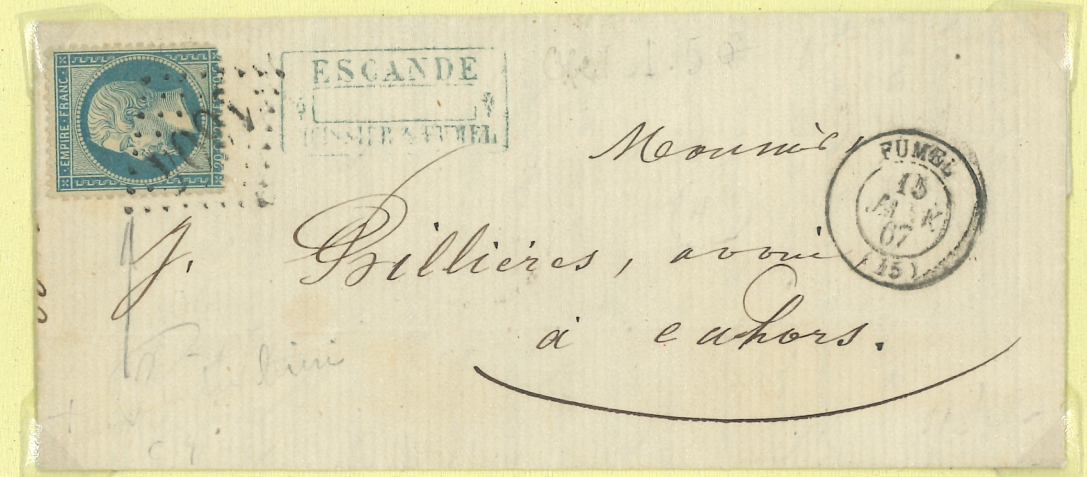 EMPIRE FRANC
ESCANDE
HUISSIER À FUMEL
FUMEL
15
JANV
67
(45)
Monsieur
J. Billières, avoué
à cahors.